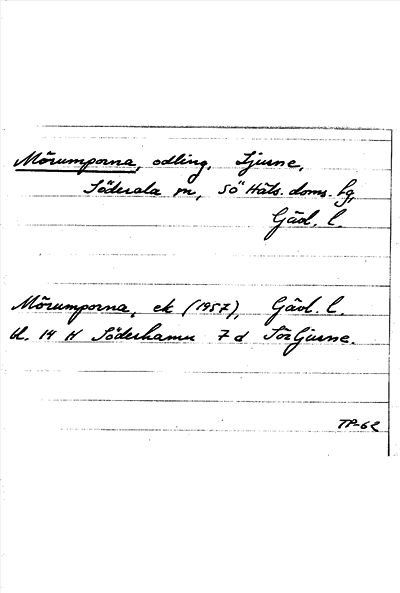 Mörumporna, odling, Ljusne,
Söderala sn, Sö Häls. doms. hg,
Gävl. l.
Mörumporna, ek (1957), Gävl. l.
bl. 14 H Söderhamn 7 d Sörljusne.
TP-62